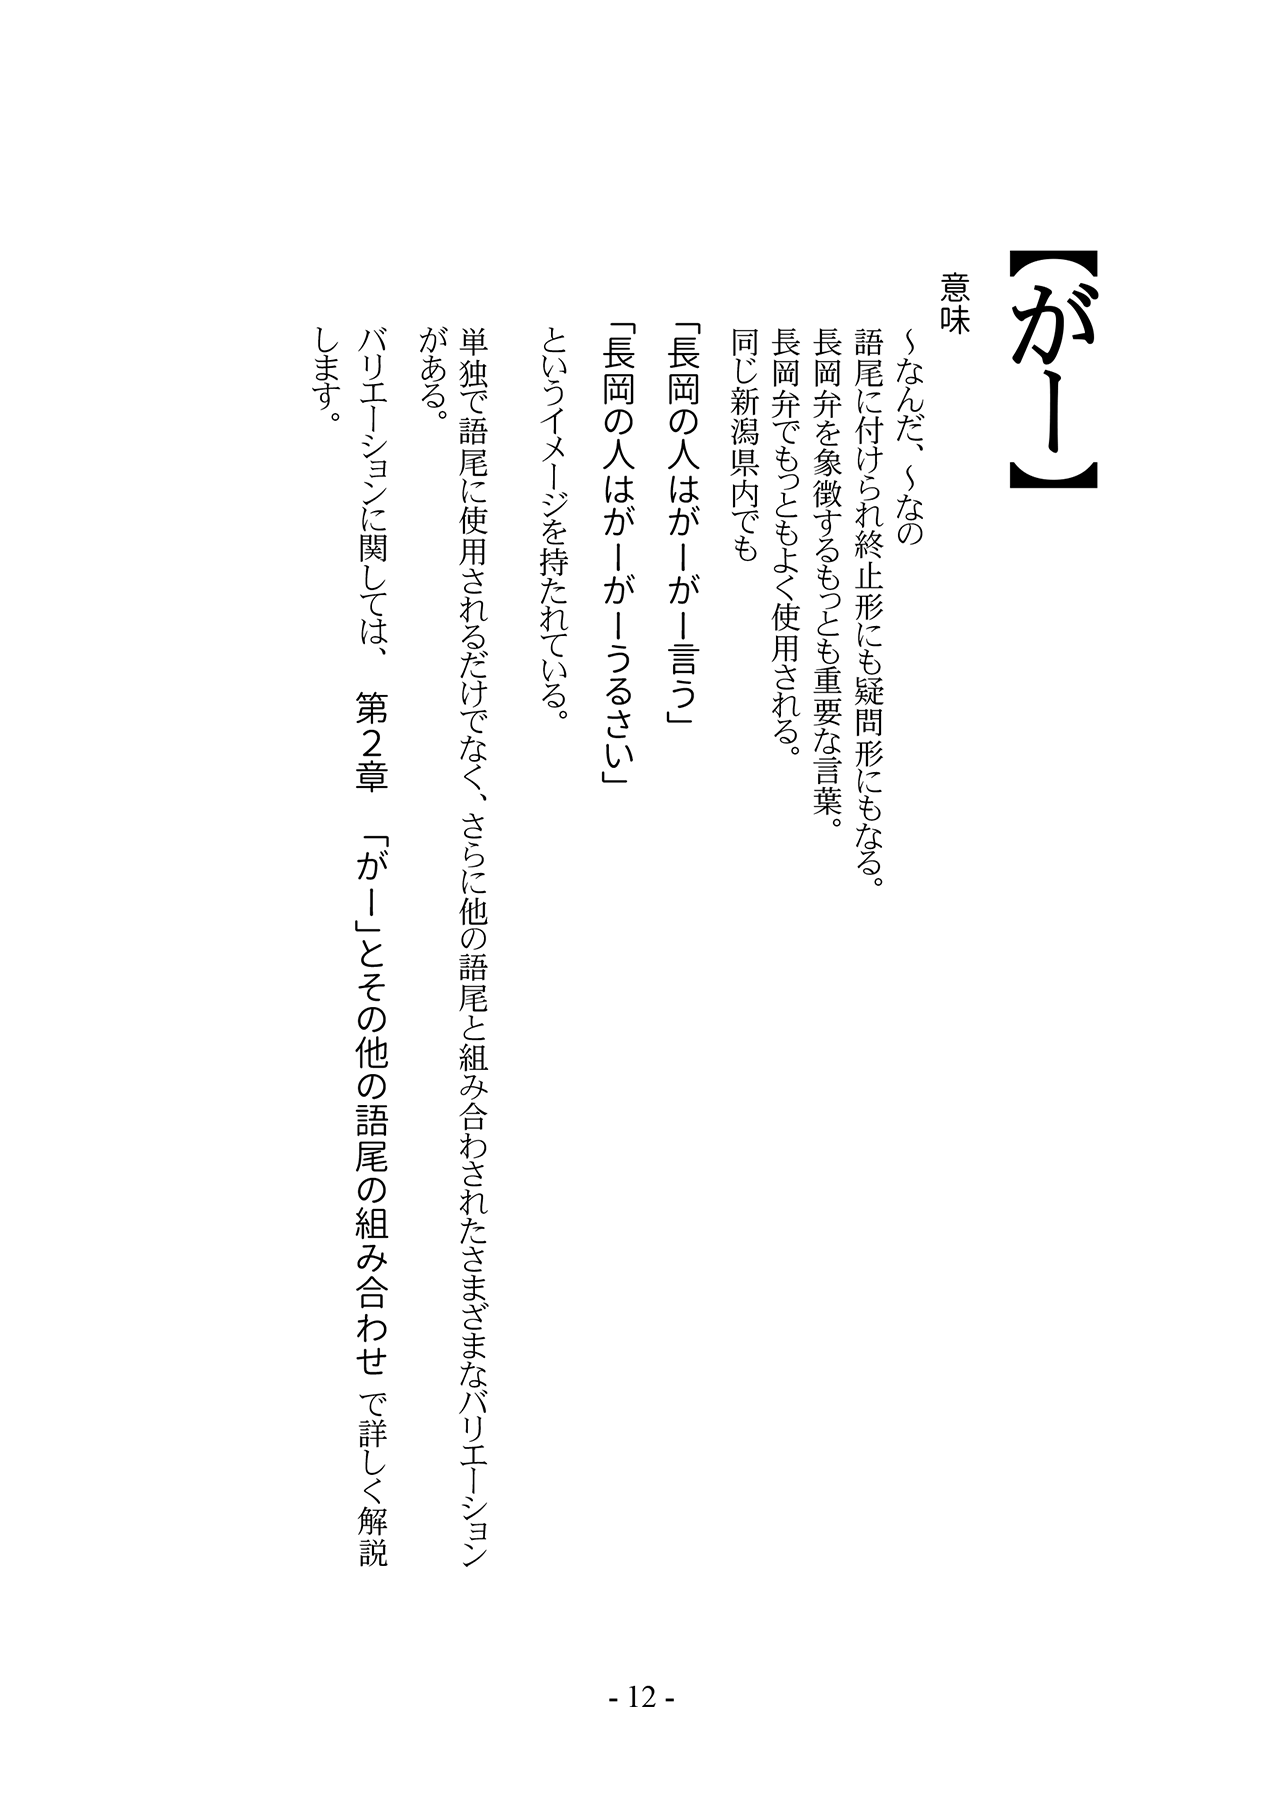 【がー】
意味
～なんだ、～なの
語尾に付けられ終止形にも疑問形にもなる。
長岡弁を象徴するもっとも重要な言葉。
長岡弁でもっともよく使用される。
同じ新潟県内でも
「長岡の人はがーがー言う」
「長岡の人はがーがーうるさい」
というイメージを持たれている。
単独で語尾に使用されるだけでなく、さらに他の語尾と組み合わされたさまざまなバリエーション
がある。
バリエーションに関しては、　第２章　「がー」とその他の語尾の組み合わせ で詳しく解説
します。
- 12 -